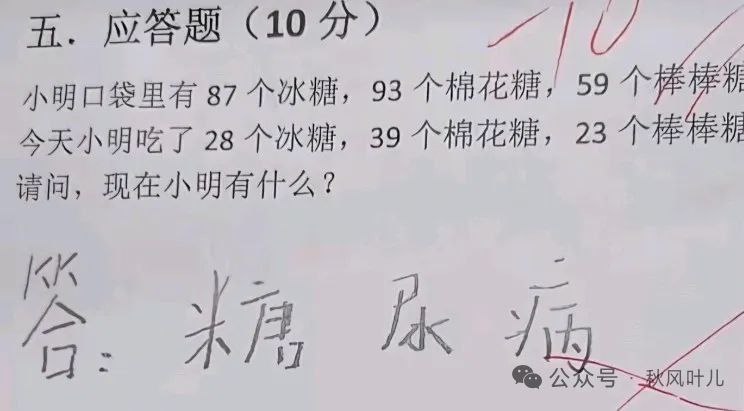 五．应答题（10 分）
-10
小明口袋里有 87 个冰糖，93 个棉花糖，59 个棒棒糖
今天小明吃了 28 个冰糖，39 个棉花糖，23 个棒棒糖
请问，现在小明有什么？
答：糖尿病
公众号 · 秋风叶儿